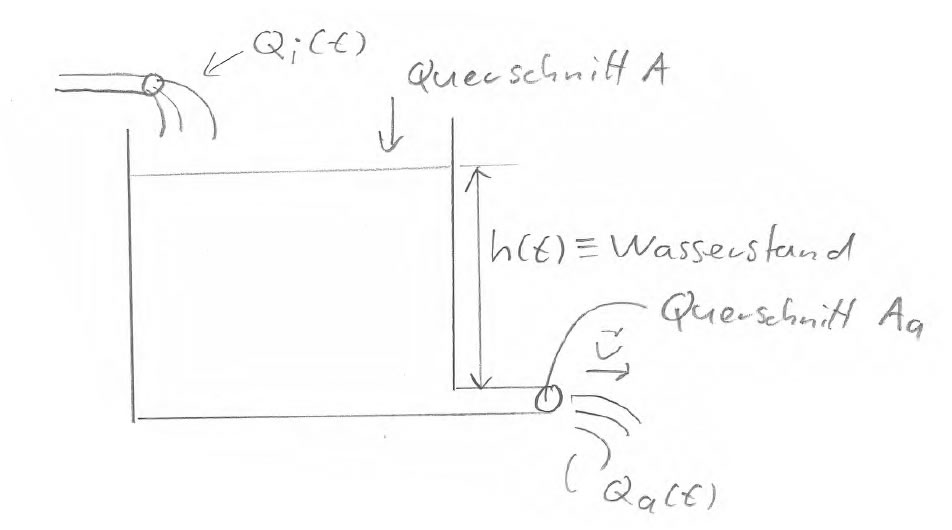 Qi(t)
Querschnitt A
h(t) ≡ Wasserstand
Querschnitt Aa
v⃗
Qa(t)